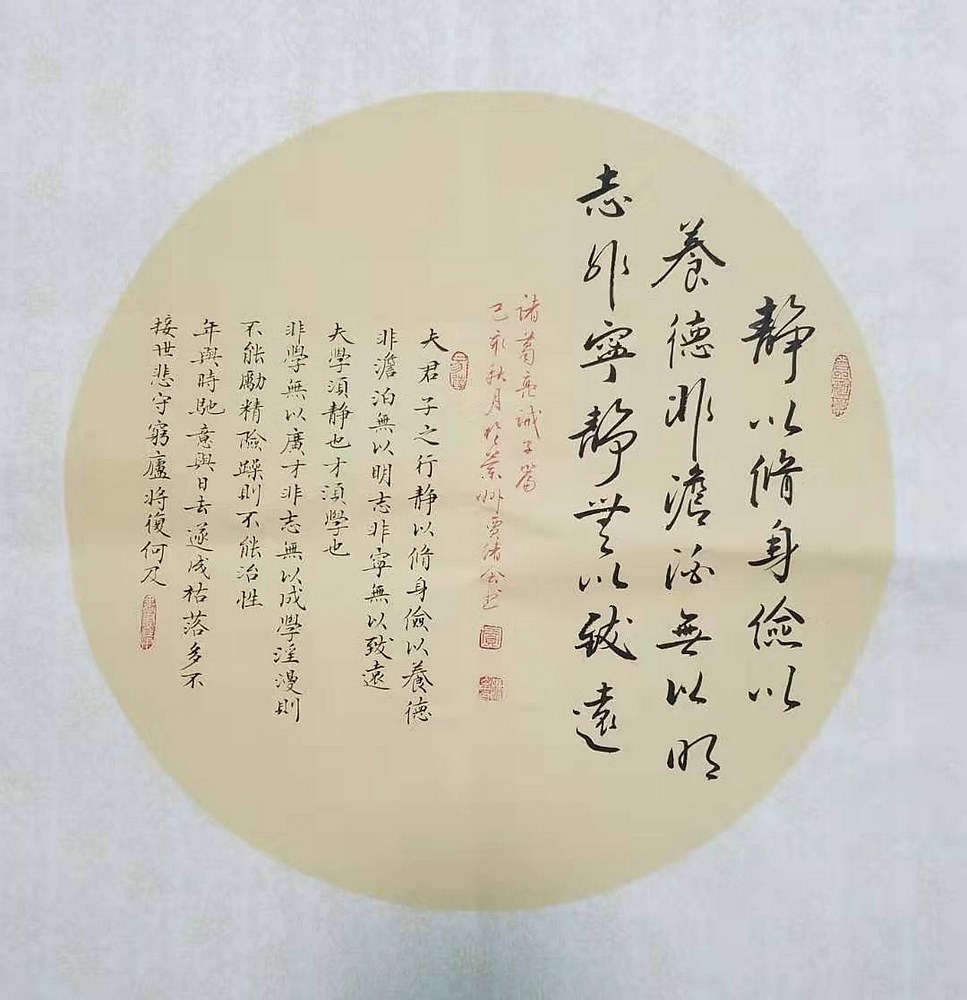 靜以脩身儉以
養德非澹泊無以明
志非寧靜無以致遠
諸葛亮誡子篇
己亥秋月於蘭州賈緒公書
夫君子之行靜以脩身儉以養德
非澹泊無以明志非寧無以致遠
夫學須靜也才須學也
非學無以廣才非志無以成學淫漫則
不能勵精險躁則不能治性
年與時馳意與日去遂成枯落多不
接世悲守窮廬將復何及